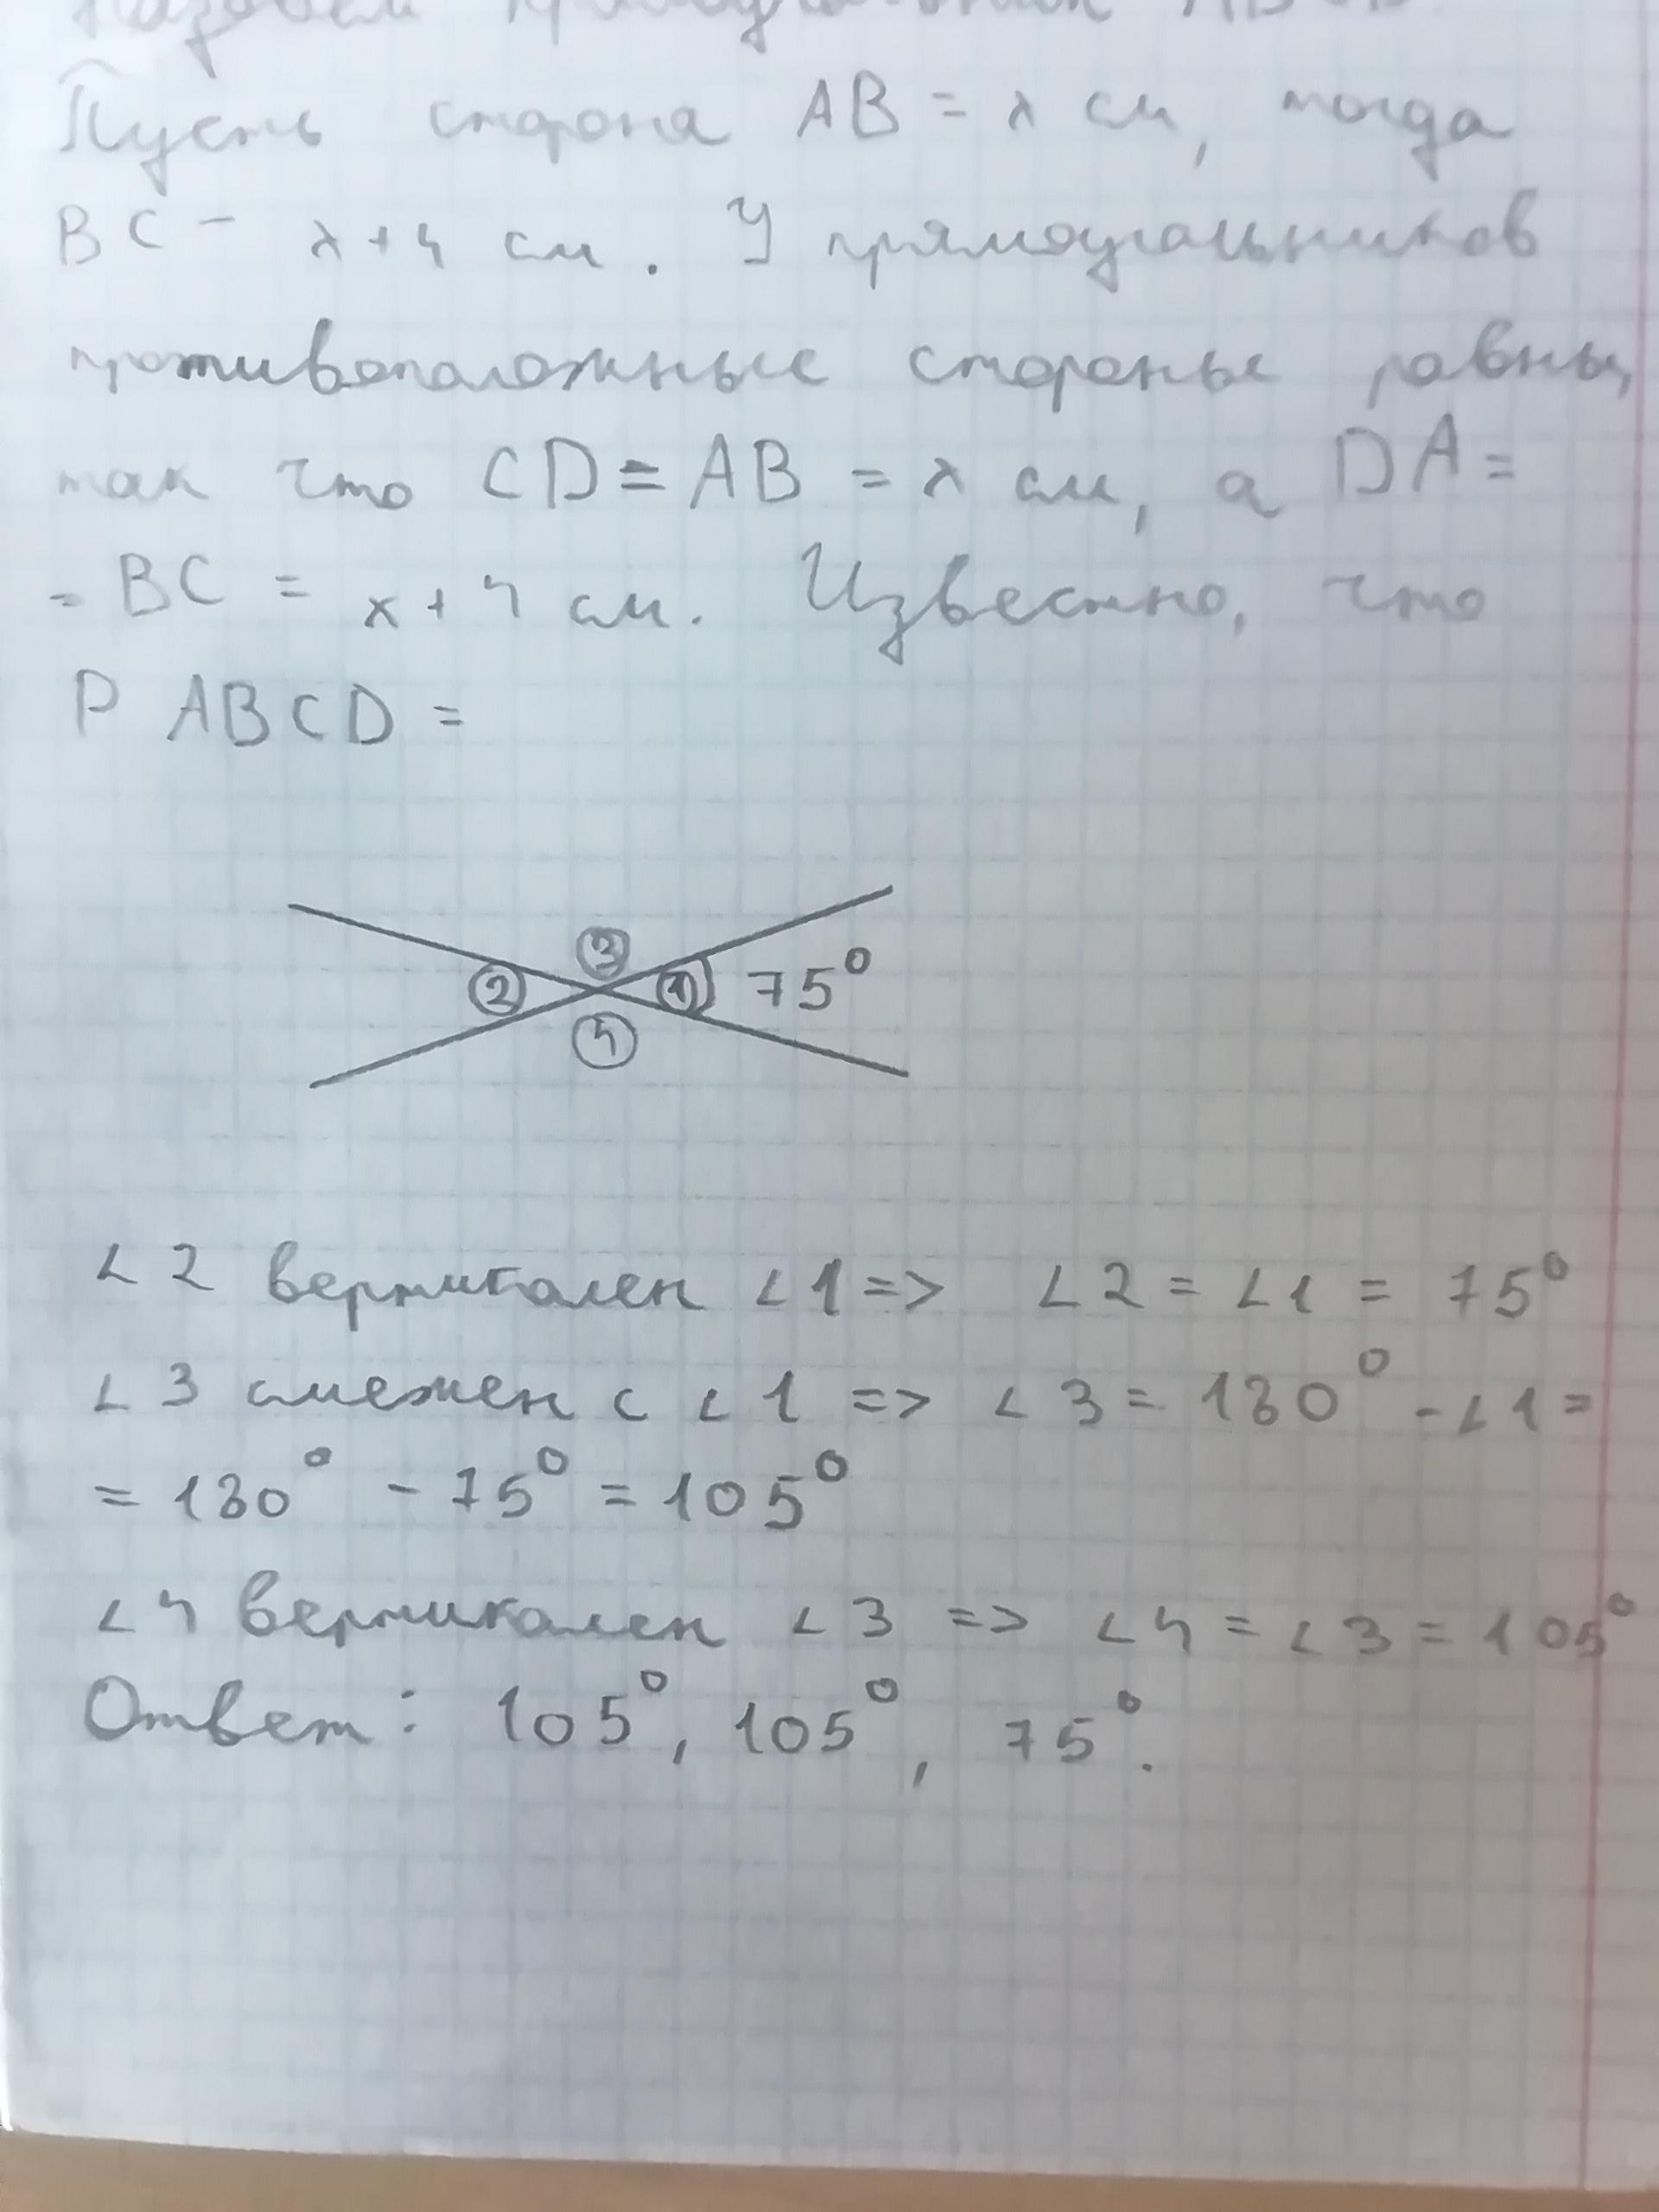 Пусть сторона AB = x см, тогда
BC - x + 4 см. У прямоугольников
противоположные стороны равны,
так что CD = AB = x см, а DA =
= BC = x + 4 см. Известно, что
P ABCD =
3
2 1 75°
4
∠2 вертикален ∠1 => ∠2 = ∠1 = 75°
∠3 смежен с ∠1 => ∠3 = 180° - ∠1 =
= 180° - 75° = 105°
∠4 вертикален ∠3 => ∠4 = ∠3 = 105°
Ответ: 105°, 105°, 75°.